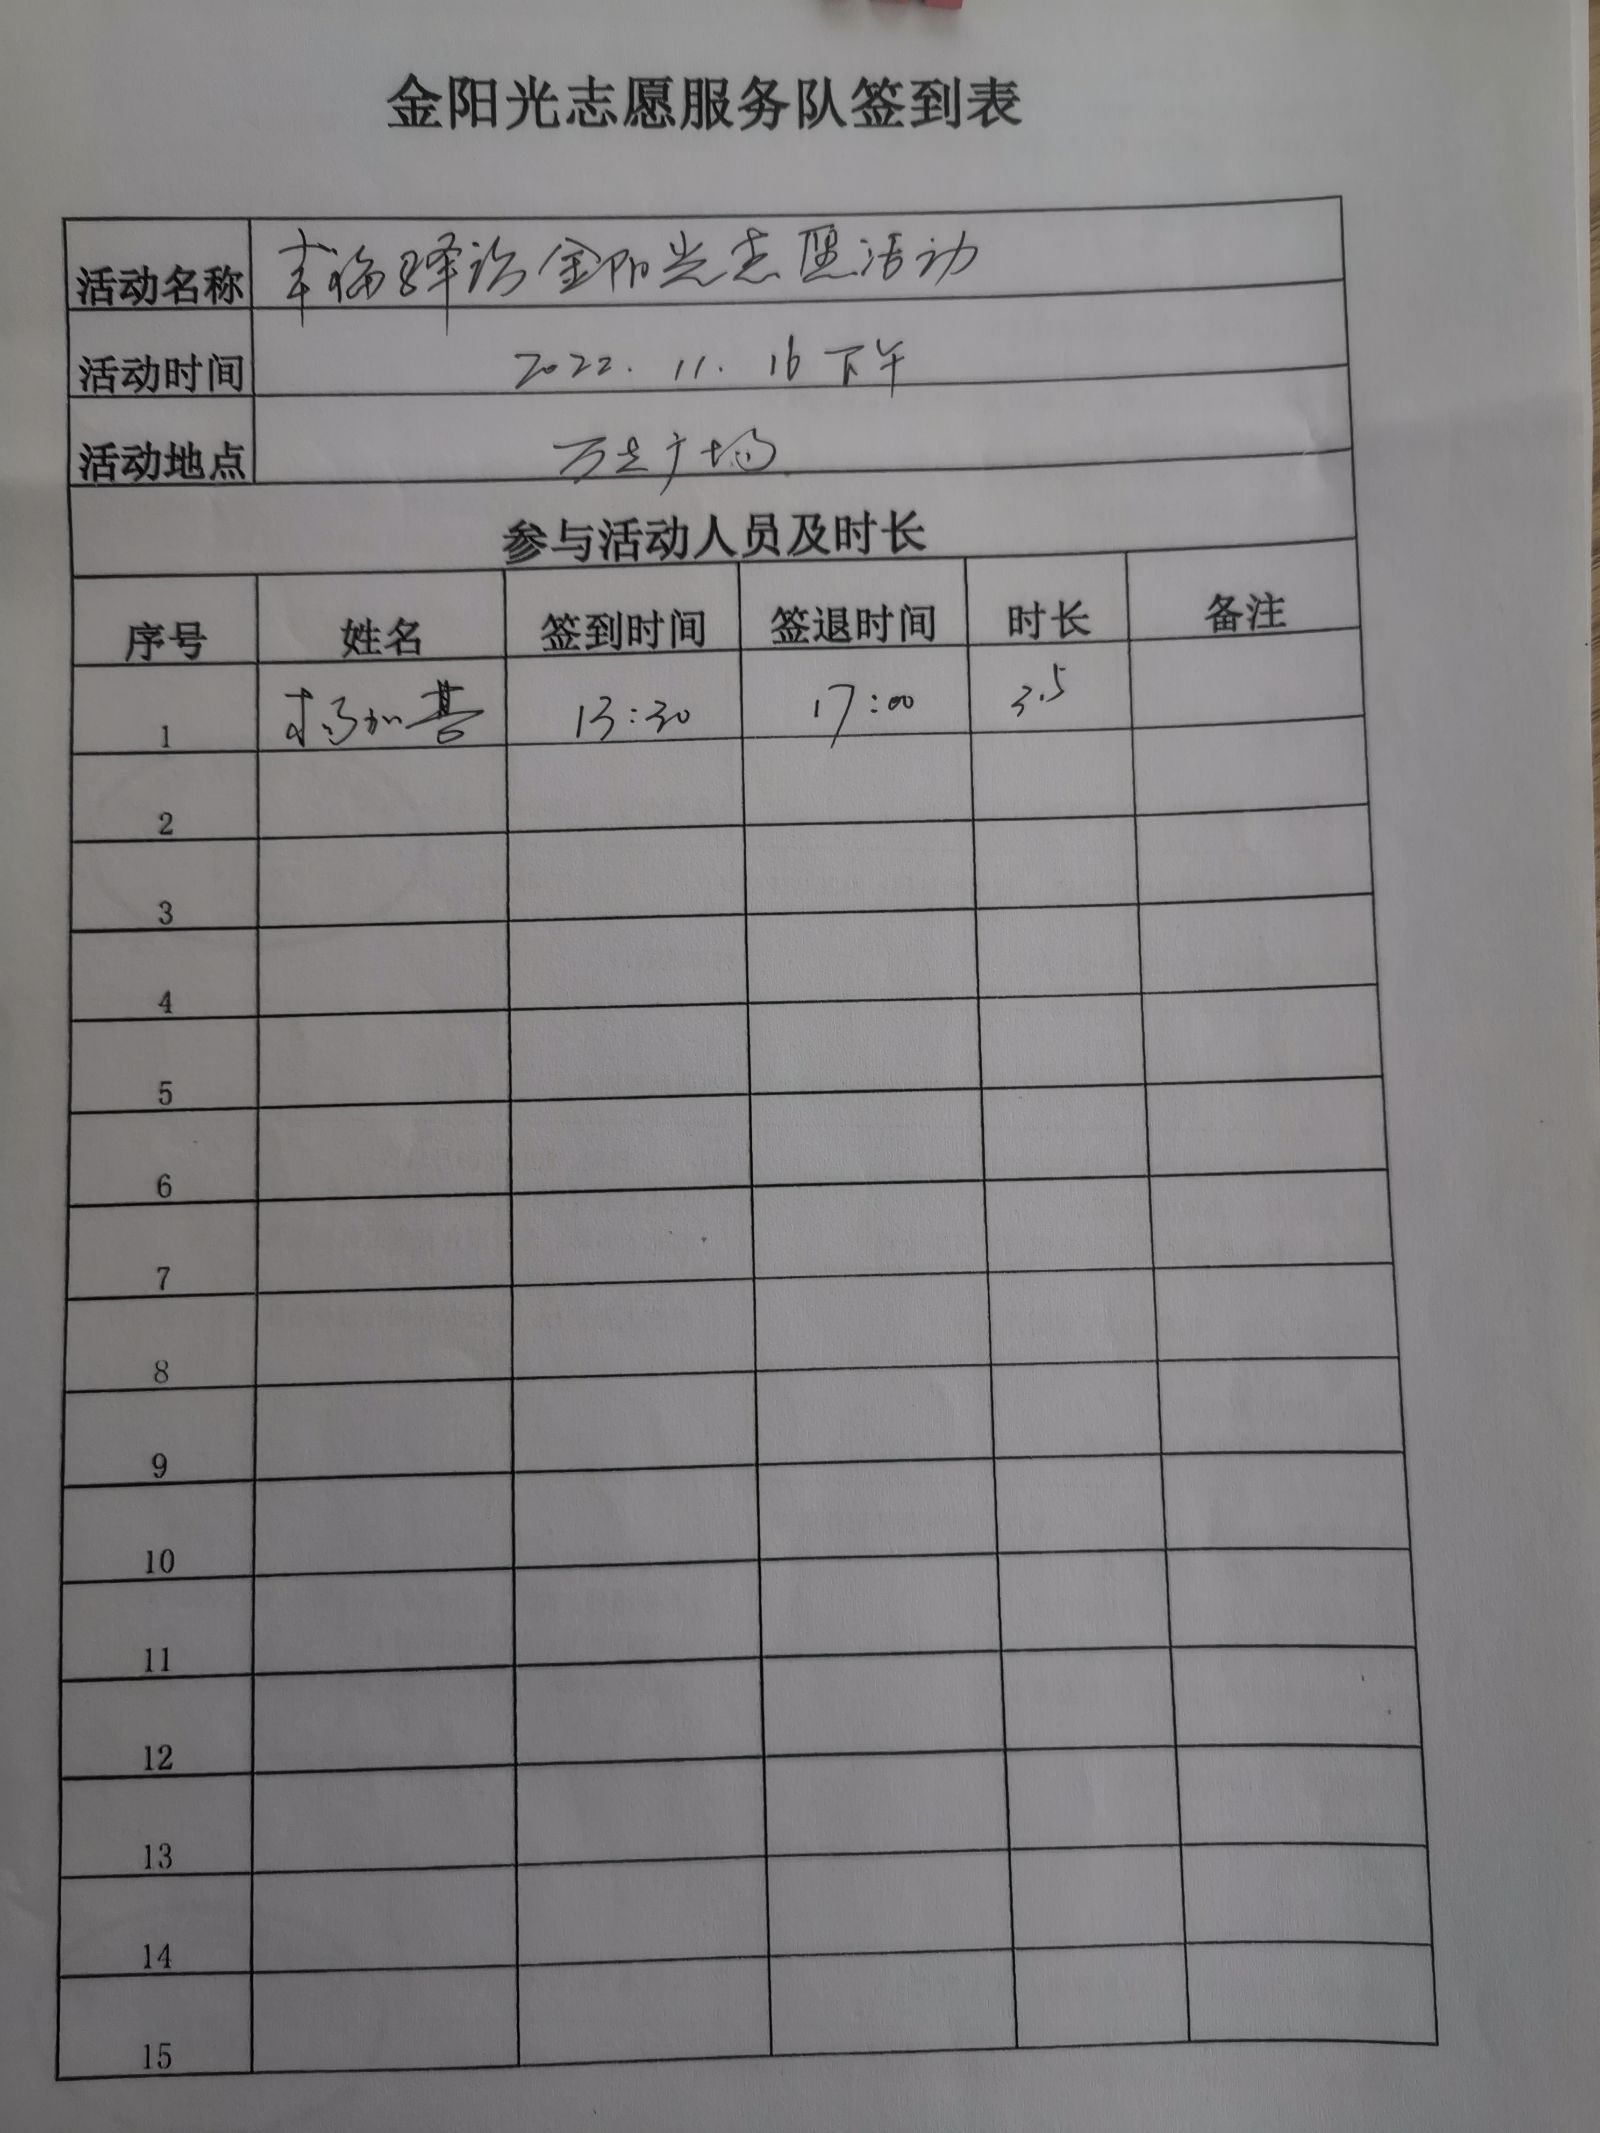 金阳光志愿服务队签到表
活动名称 幸福驿站金阳光志愿活动
活动时间 2022.11.16下午
活动地点 万达广场
参与活动人员及时长
序号 姓名 签到时间 签退时间 时长 备注
1 13:30 17:00 3.5
2
3
4
5
6
7
8
9
10
11
12
13
14
15